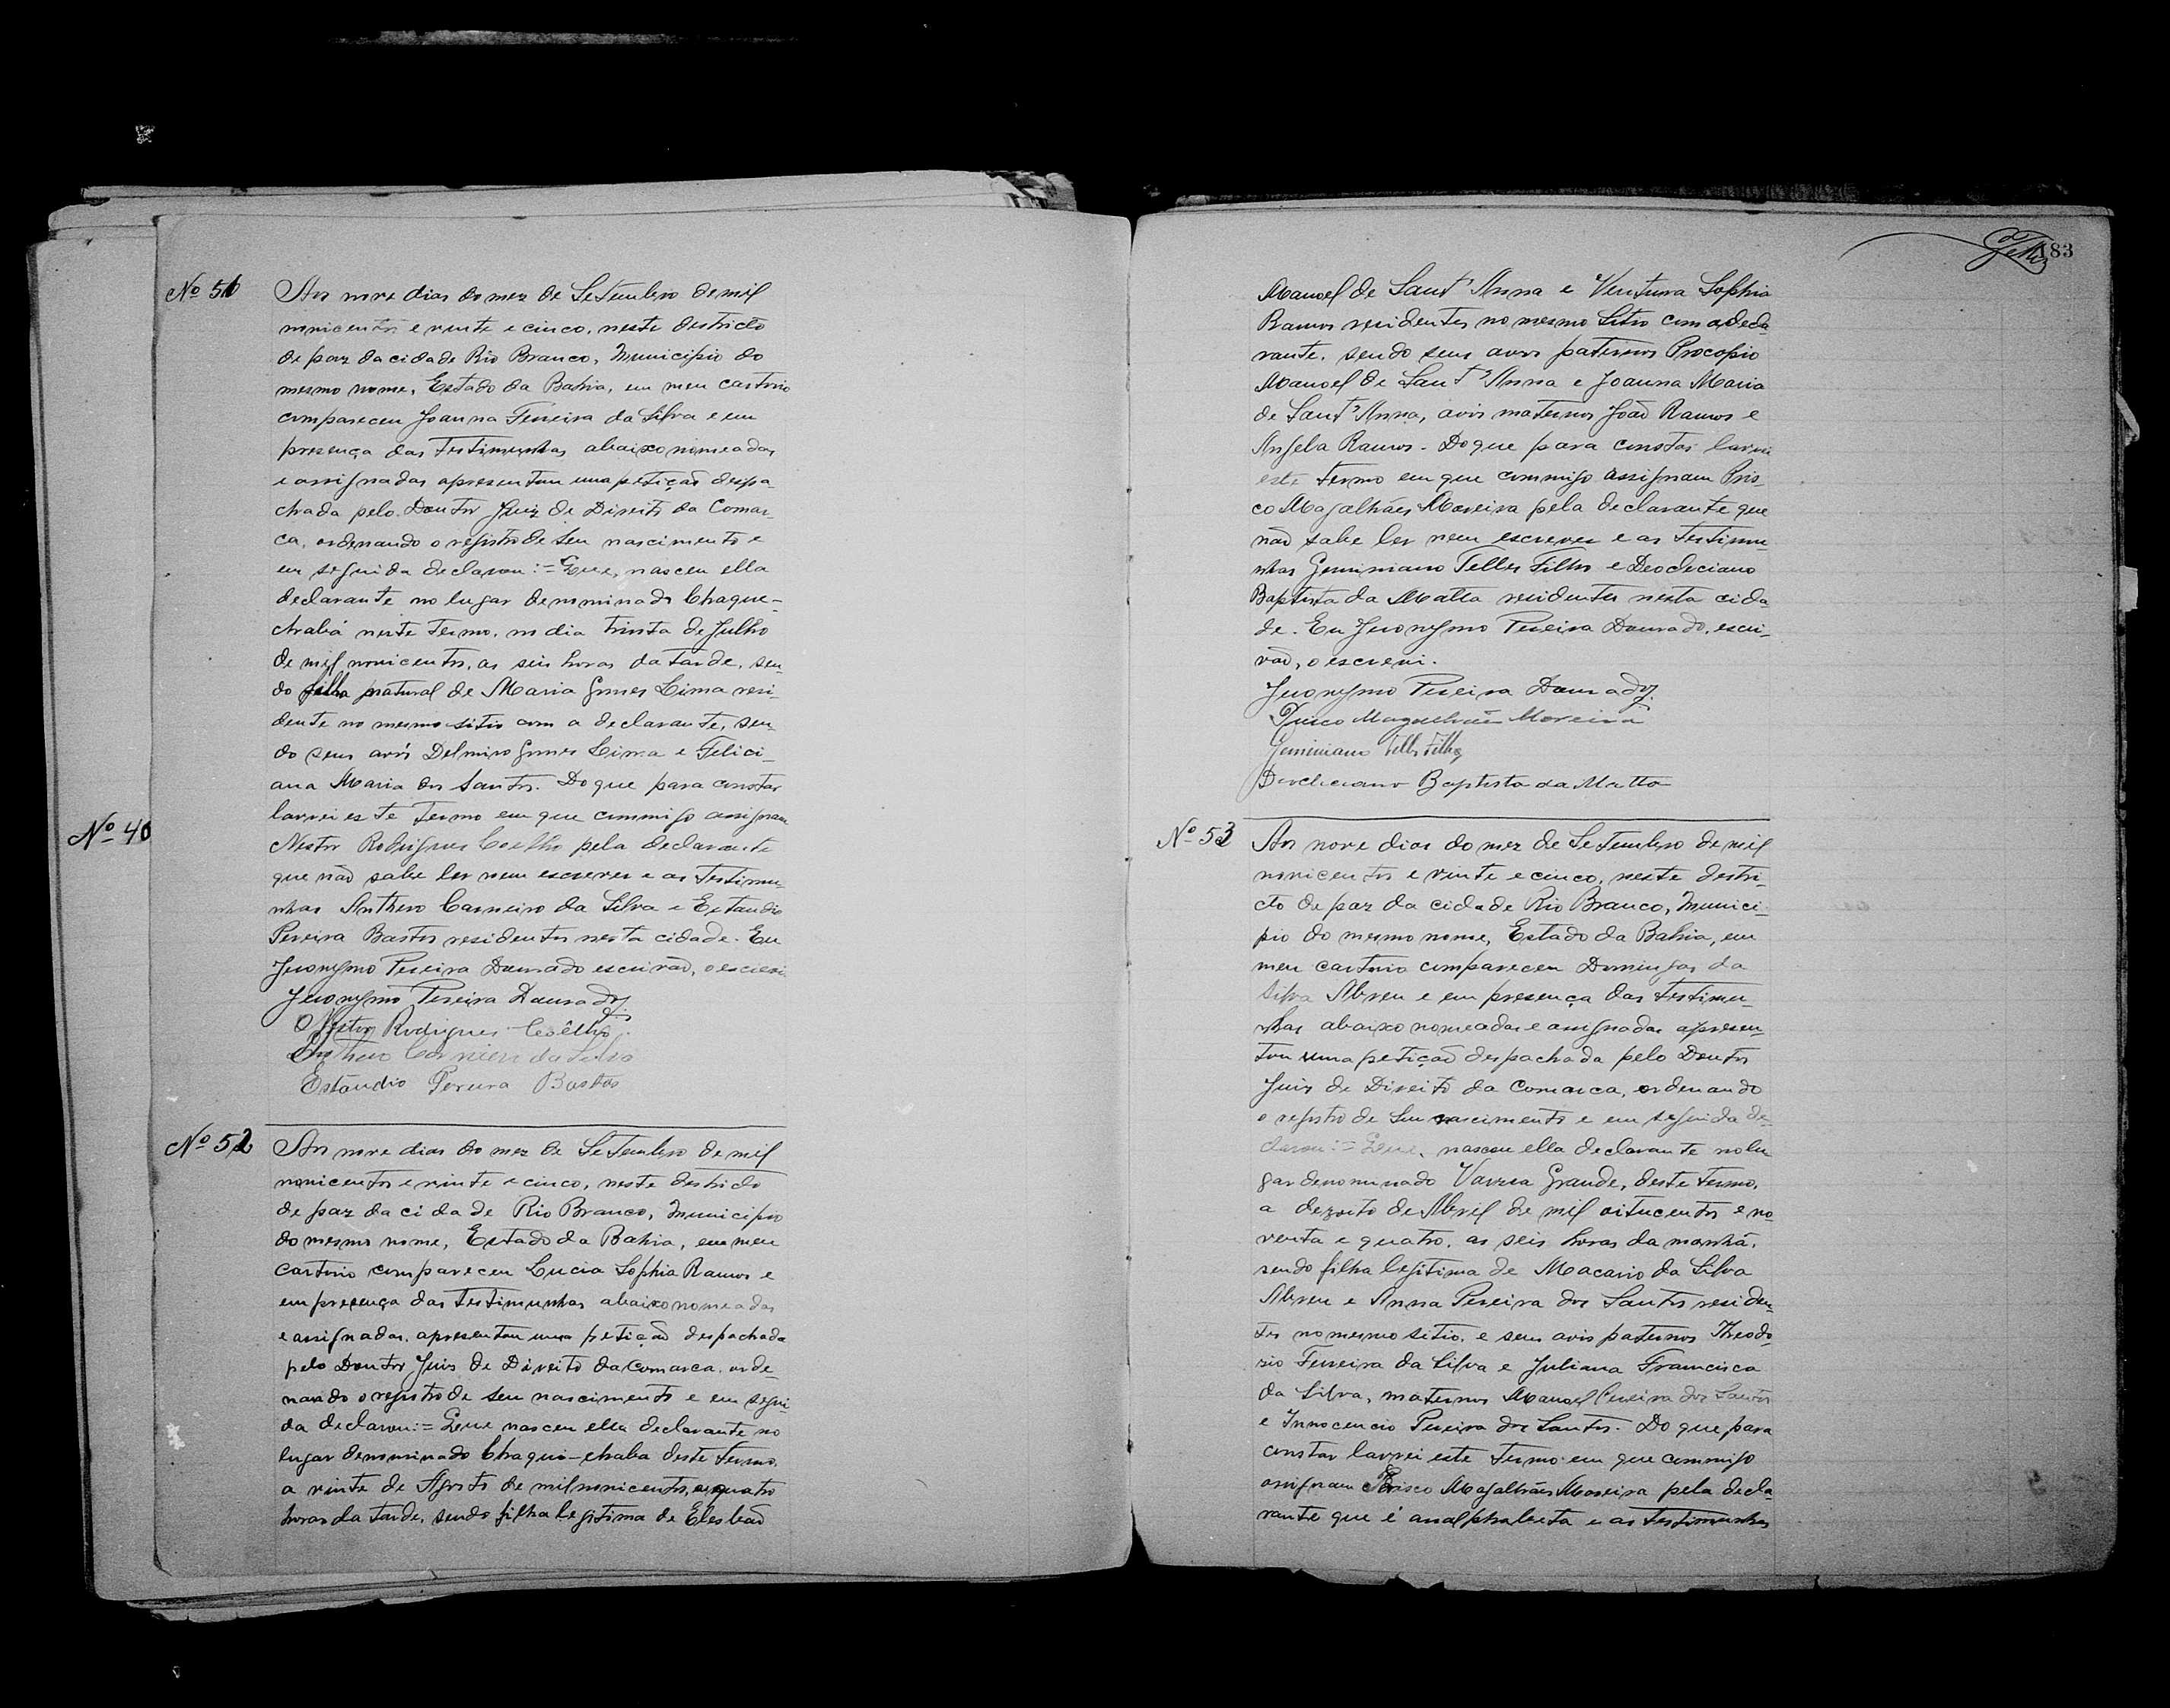 Nº 51
Aos nove dias do mez de Setembro de mil
novicentos e vinte e cinco, neste destricto
de paz da cidade Rio Branco, Municipio do
mesmo nome, Estado da Bahia, em meu cartorio
compareceu Joanna Ferreira da Silva e em
presença das testimunhas abaixo nomeadas
e assignadas apresentou uma petição despa-
chada pelo Doutor Juiz de Direito da Comar-
ca, ordenando o registro de seu nascimento e
em seguida declarou:= Que, nasceu ella
declarante no lugar denominado Chaque-
chabá neste Termo, no dia trinta de Julho
de mil novicentos, as seis horas da tarde, sen-
do filha natural de Maria Gomes Lima resi-
dente no mesmo sitio com a declarante, sen-
do seus avós Delmiro Gomes Lima e Felici-
ana Maria dos Santos. Do que para constar
lavrei este termo em que commigo assignam
Nestor Rodrigues Coelho pela declarante
que não sabe ler nem escrever e as testimu-
nhas Anthero Carneiro da Silva e Estaudio
Pereira Bastos residentes nesta cidade. Eu
Jeronymo Pereira Dourado escrivão, o escrevi
Jeronymo Pereira Dourado
Nestor Rodrigues Coêlho
Anthero Carneiro da Silva
Estaudio Pereira Bastos
Nº 40
Nº 52
Aos nove dias do mez de Setembro de mil
novicentos e vinte e cinco, neste destricto
de paz da cidade Rio Branco, Municipio
do mesmo nome, Estado da Bahia, em meu
Cartorio compareceu Lucia Sophia Ramos e
em presença das testimunhas abaixo nomeadas
e assignadas, apresentou uma petição despachada
pelo Doutor Juis de Direito da Comarca, orde-
nando o registro de seu nascimento e em segui-
da declarou:= Que nasceu ella declarante no
lugar denominado Chaqui-chaba deste Termo,
a vinte de Agosto de mil novicentos, as quatro
horas da tarde, sendo filha legitima de Elesbão
183
Manoel de Sant'Anna e Ventura Sophia
Ramos residentes no mesmo Sitio com a decla
rante, sendo seus avos paternos Procopio
Manoel de Sant'Anna e Joanna Maria
de Sant'Anna, avós maternos João Ramos e
Angela Ramos. Do que para constar lavrei
este termo em que commigo assignam Pris-
co Magalhães Moreira pela declarante que
não sabe ler nem escrever e as testimu-
nhas Geminiano Telles Filho e Deocleciano
Baptista da Matta residentes nesta cida
de. Eu Jeronymo Pereira Dourado, escri-
vão, o escrevi.
Jeronymo Pereira Dourado
Prisco Magalhães Moreira
Geminiano Telles Filho
Deocleciano Baptista da Matta
Nº 53
Aos nove dias do mez de Setembro de mil
novicentos e vinte e cinco, neste destri-
cto de paz da cidade Rio Branco, Munici-
pio do mesmo nome, Estado da Bahia, em
meu cartorio compareceu Domingas da
Silva Abreu e em presença das testimu-
nhas abaixo nomeadas e assignadas apresen-
tou uma petição despachada pelo Doutor
Juis de Direito da Comarca, ordenando
o registro de seu nascimento e em seguida de-
clarou:= Que, nasceu ella declarante no lu
gar denominado Varzea Grande, deste termo,
a dezoito de Abril de mil oitucentos e no-
venta e quatro, as seis horas da manhã,
sendo filha legitima de Macario da Silva
Abreu e Anna Pereira dos Santos residen-
tes no mesmo sitio, e seus avós paternos Theodo-
rio Ferreira da Silva e Juliana Francisca
da Silva, maternos Manoel Pereira dos Santos
e Innocencio Pereira dos Santos. Do que para
constar lavrei este termo em que commigo
assignam Prisco Magalhães Moreira pela decla-
rante que é analphabeta e as testimunhas